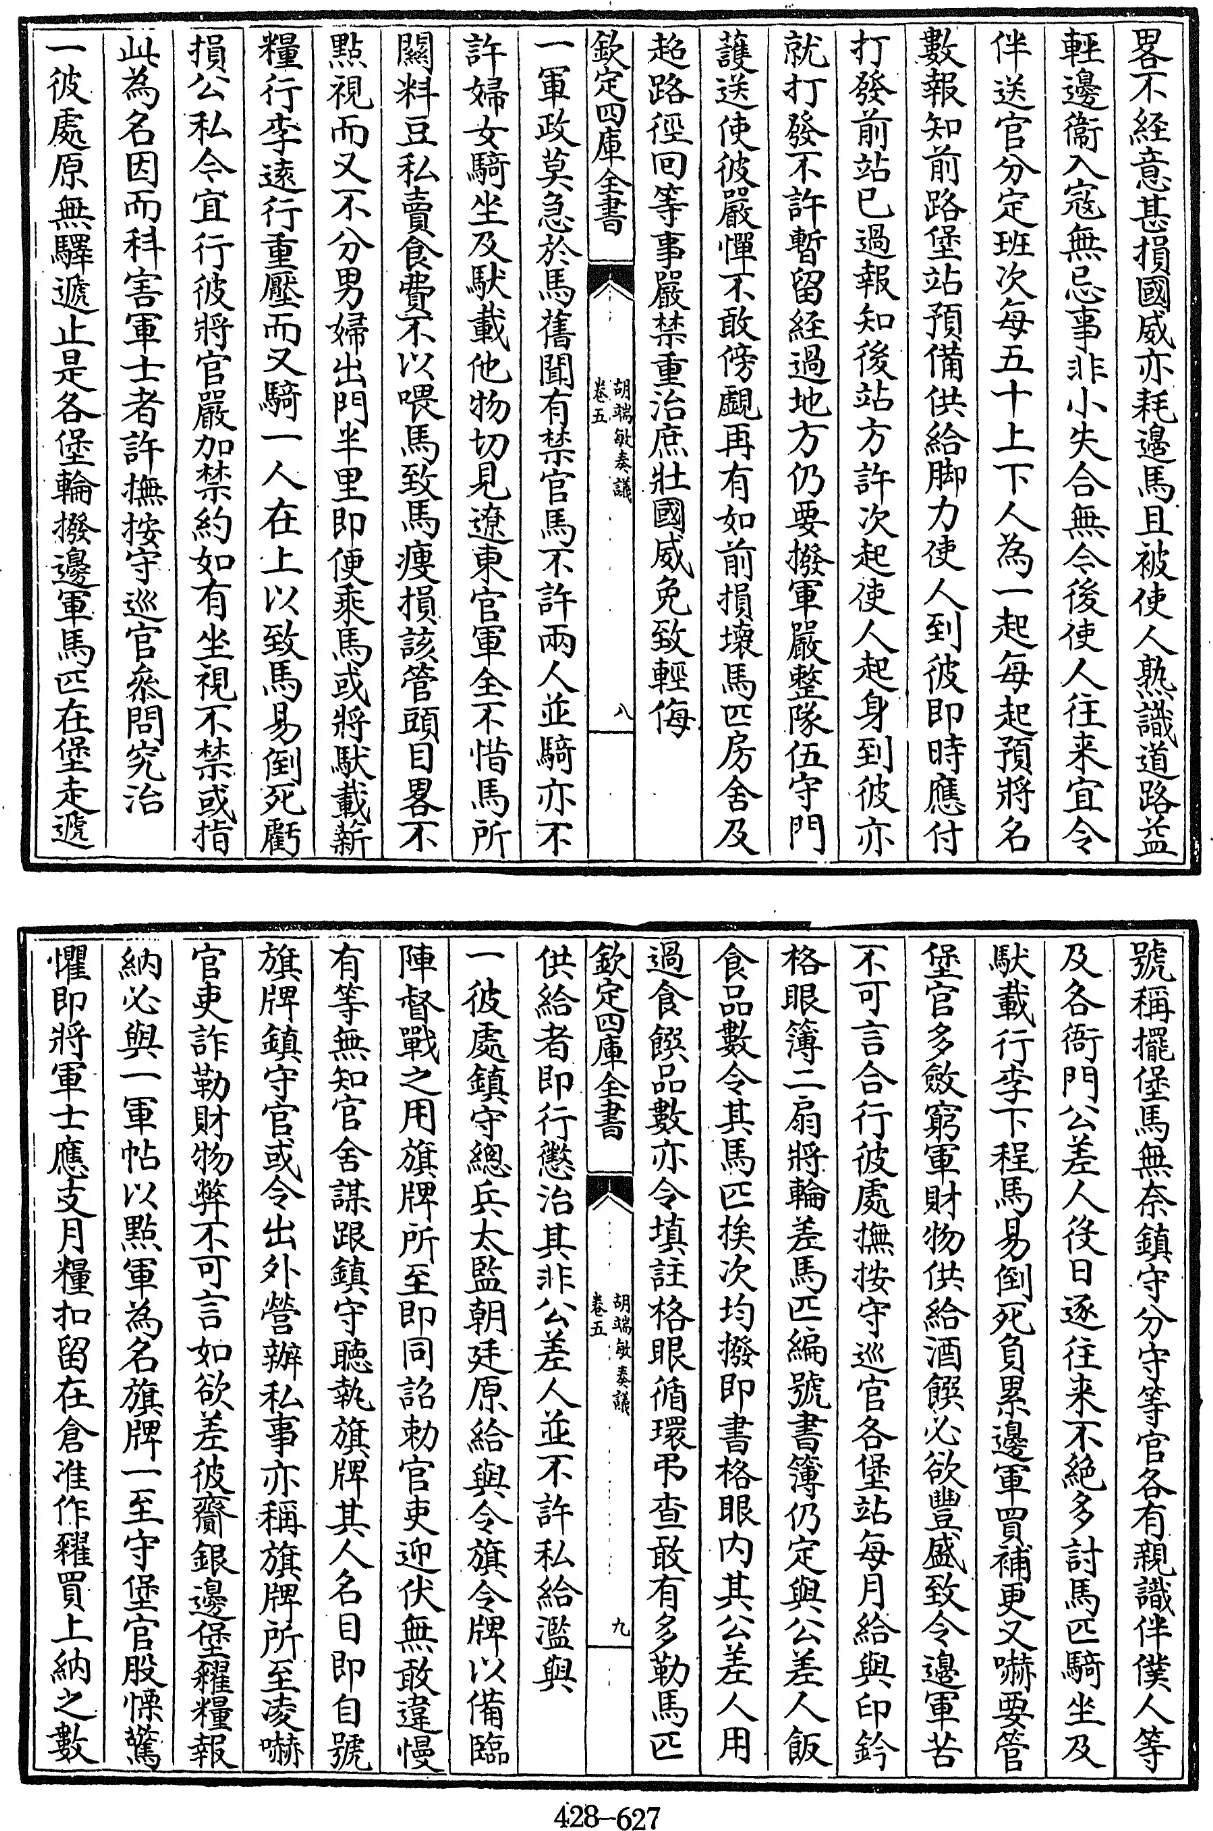 畧不經意甚損國威亦耗邊馬且被使人熟識道路益
輕邊衞入寇無忌事非小失合無令後使人往来宜令
伴送官分定班次每五十上下人為一起每起預將名
數報知前路堡站預備供給脚力使人到彼即時應付
打發前站已過報知後站方許次起使人起身到彼亦
就打發不許暫留經過地方仍要撥軍嚴整隊伍守門
護送使彼嚴憚不敢傍覷再有如前損壞馬匹房舍及
超路徑回等事嚴禁重治庶壯國威免致輕侮
欽定四庫全書
胡端敏奏議
卷五
八
一軍政莫急於馬舊聞有禁官馬不許兩人並騎亦不
許婦女騎坐及馱載他物切見遼東官軍全不惜馬所
關料豆私賣食費不以喂馬致馬瘦損該管頭目畧不
點視而又不分男婦出門半里即便乘馬或將馱載薪
糧行李遠行重壓而又騎一人在上以致馬易倒死虧
損公私令宜行彼將官嚴加禁約如有坐視不禁或指
此為名因而科害軍士者許撫按守巡官叅問究治
一彼處原無驛遞止是各堡輪撥邊軍馬匹在堡走遞
號稱擺堡馬無奈鎮守分守等官各有親識伴僕人等
及各衙門公差人役日逐往来不絶多討馬匹騎坐及
馱載行李下程馬易倒死負累邊軍買補更又嚇要管
堡官多斂窮軍財物供給酒饌必欲豐盛致令邊軍苦
不可言合行彼處撫按守巡官各堡站每月給與印鈐
格眼簿二扇將輪差馬匹編號書簿仍定與公差人飯
食品數令其馬匹挨次均撥即書格眼内其公差人用
過食饌品數亦令填註格眼循環弔查敢有多勒馬匹
欽定四庫全書
胡端敏奏議
卷五
九
供給者即行懲治其非公差人並不許私給濫與
一彼處鎮守總兵太監朝廷原給與令旗令牌以備臨
陣督戰之用旗牌所至即同詔勅官吏迎伏無敢違慢
有等無知官舍謀跟鎮守聽執旗牌其人名目即自號
旗牌鎮守官或令出外營辦私事亦稱旗牌所至凌嚇
官吏詐勒財物弊不可言如欲差彼齎銀邊堡糴糧報
納必與一軍帖以點軍為名旗牌一至守堡官股慄驚
懼即將軍士應支月糧扣留在倉准作糴買上納之數
428-627